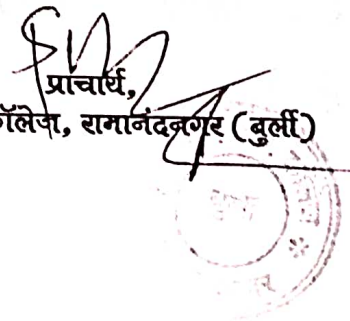 प्राचार्य,
कॉलेज, रामानंदनगर (बुर्ली)